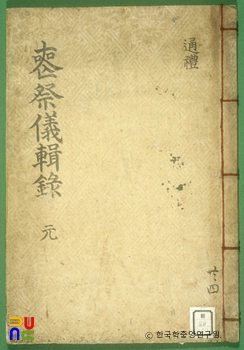 通禮
共四
喪祭儀輯錄 元
© 한국학중앙연구원